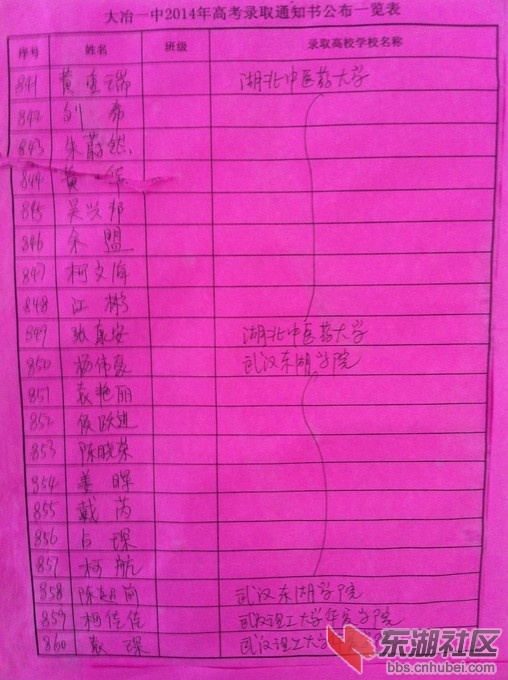 大冶一中2014年高考录取通知书公布一览表
序号 姓名 班级 录取高校学校名称
841 黄 瑞 湖北中医药大学
842 刘 希
843 朱蔚然
844 黄
845 吴兴邦
846 余 盟
847 柯文海
848 江 彬
849 张 安 湖北中医药大学
850 杨伟 武汉东湖学院
851 袁艳丽
852 侯跃进
853 陈晓荣
854 姜 晖
855 戴 芮
856 占 琛
857 柯 航
858 陈 武汉东湖学院
859 柯佳佳 武汉理工大学华夏学院
860 袁 琛 武汉理工大学
东湖社区
bbs.cnhubei.com